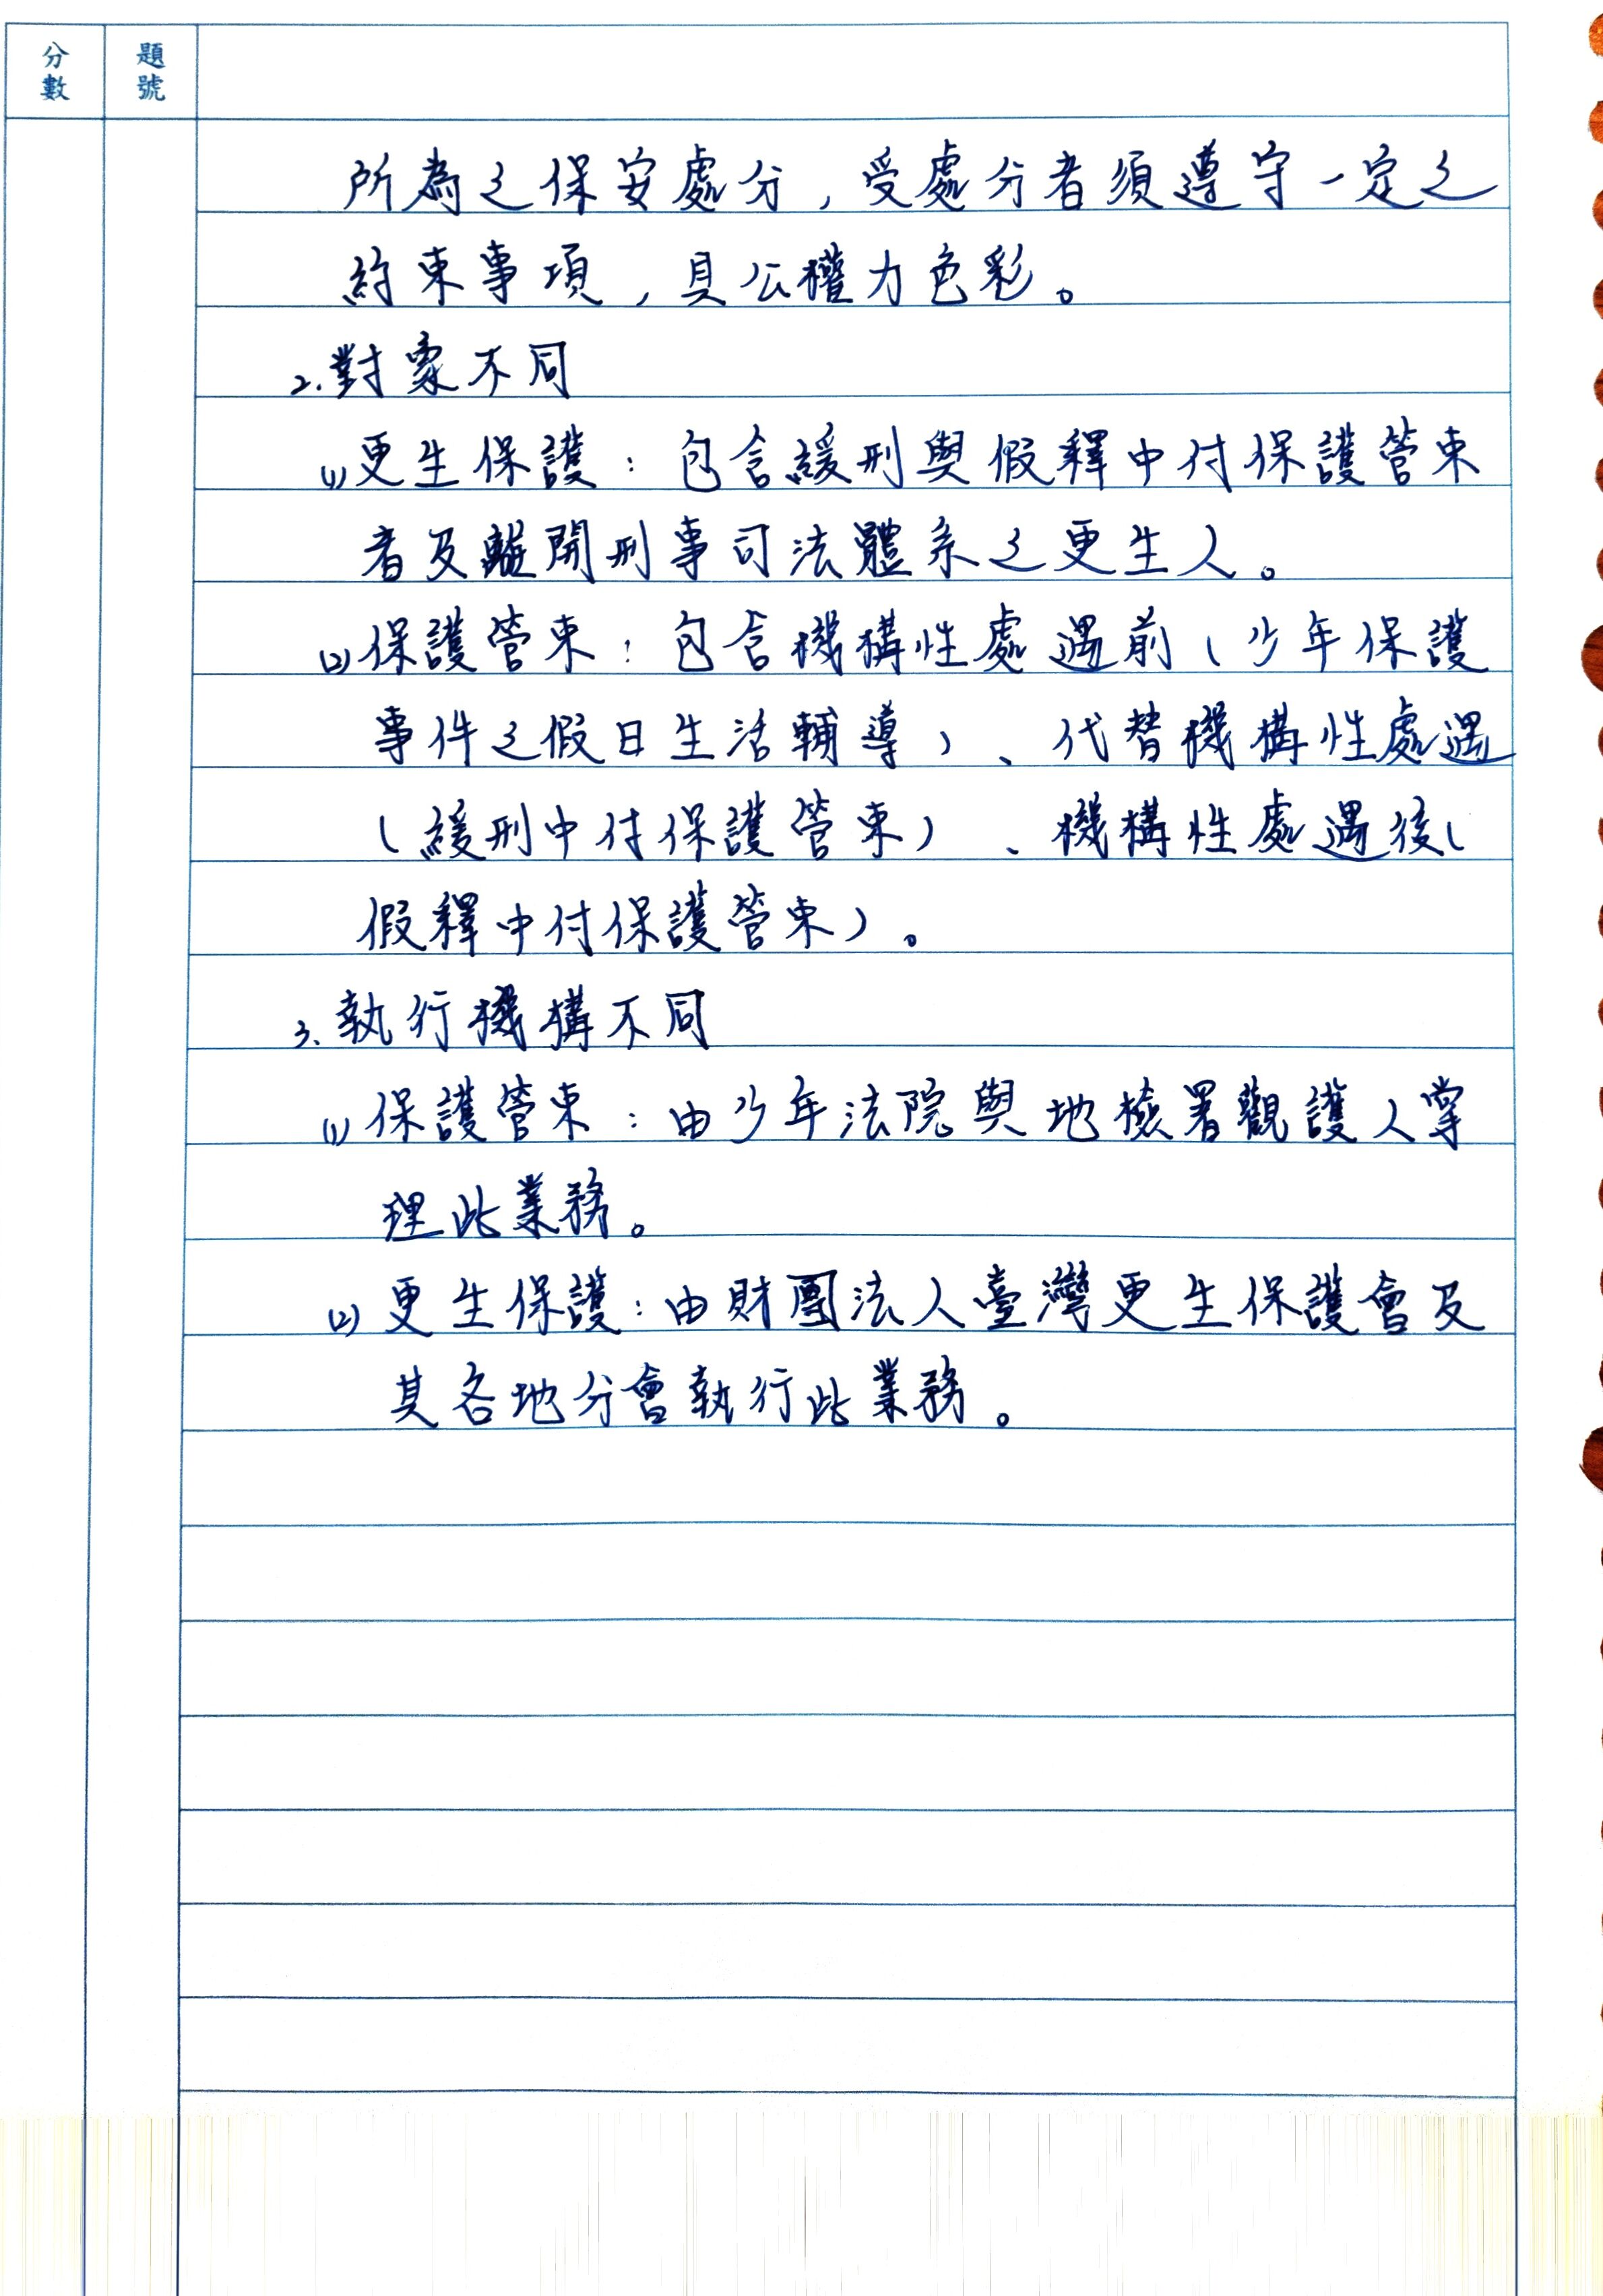 分數
題號
所為之保安處分，受處分者須遵守一定之
約束事項，具公權力色彩。
2.對象不同
(1)更生保護：包含緩刑與假釋中付保護管束
者及離開刑事司法體系之更生人。
(2)保護管束：包含機構性處遇前(少年保護
事件之假日生活輔導)、代替機構性處遇
(緩刑中付保護管束)、機構性處遇後(
假釋中付保護管束)。
3.執行機構不同
(1)保護管束：由少年法院與地檢署觀護人掌
理此業務。
(2)更生保護：由財團法人臺灣更生保護會及
其各地分會執行此業務。